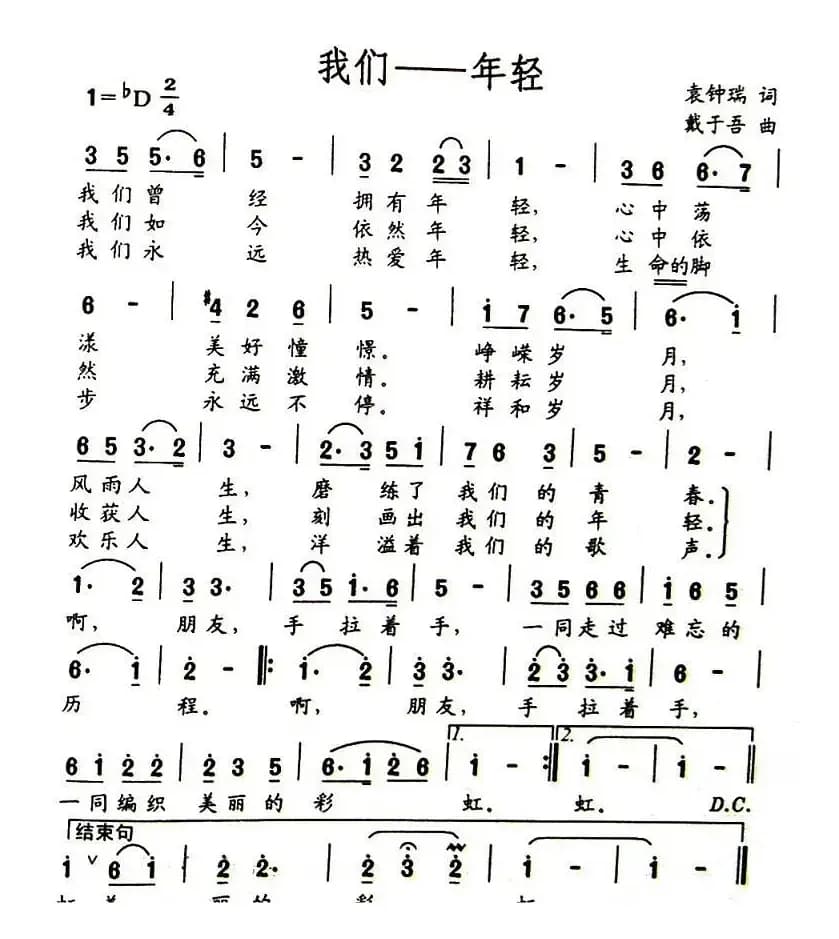 我们——年轻
1=♭D 2/4
袁钟瑞 词
戴于吾 曲
3 5 5· 6 | 5 - | 3 2 2 3 | 1 - | 3 6 6· 7 |
我们曾 经 拥有年 轻, 心中荡
我们如 今 依然年 轻, 心中依
我们永 远 热爱年 轻, 生命的脚
6 - | #4 2 6 | 5 - | i 7 6· 5 | 6· i |
漾 美好憧 憬。 峥嵘岁 月,
然 充满激 情。 耕耘岁 月,
步 永远不 停。 祥和岁 月,
6 5 3· 2 | 3 - | 2· 3 5 i | 7 6 3 | 5 - | 2 - |
风雨人 生, 磨 练了 我们的青 春。
收获人 生, 刻 画出 我们的年 轻。
欢乐人 生, 洋 溢着 我们的歌 声。
1· 2 | 3 3· | 3 5 i· 6 | 5 - | 3 5 6 6 | i 6 5 |
啊, 朋友, 手拉着 手, 一同走过 难忘的
6· i | 2 - |: i· 2 | 3 3· | 2 3 3· i | 6 - |
历 程。 啊, 朋友, 手拉着 手,
1. 2.
6 i 2 2 | 2 3 5 | 6· i 2 6 | i - :| i - | i - ||
一同编织 美丽的 彩 虹。 虹。 D.C.
结束句
i ∨ 6 i | 2 2· | 2 3 2 | i - | i - ||